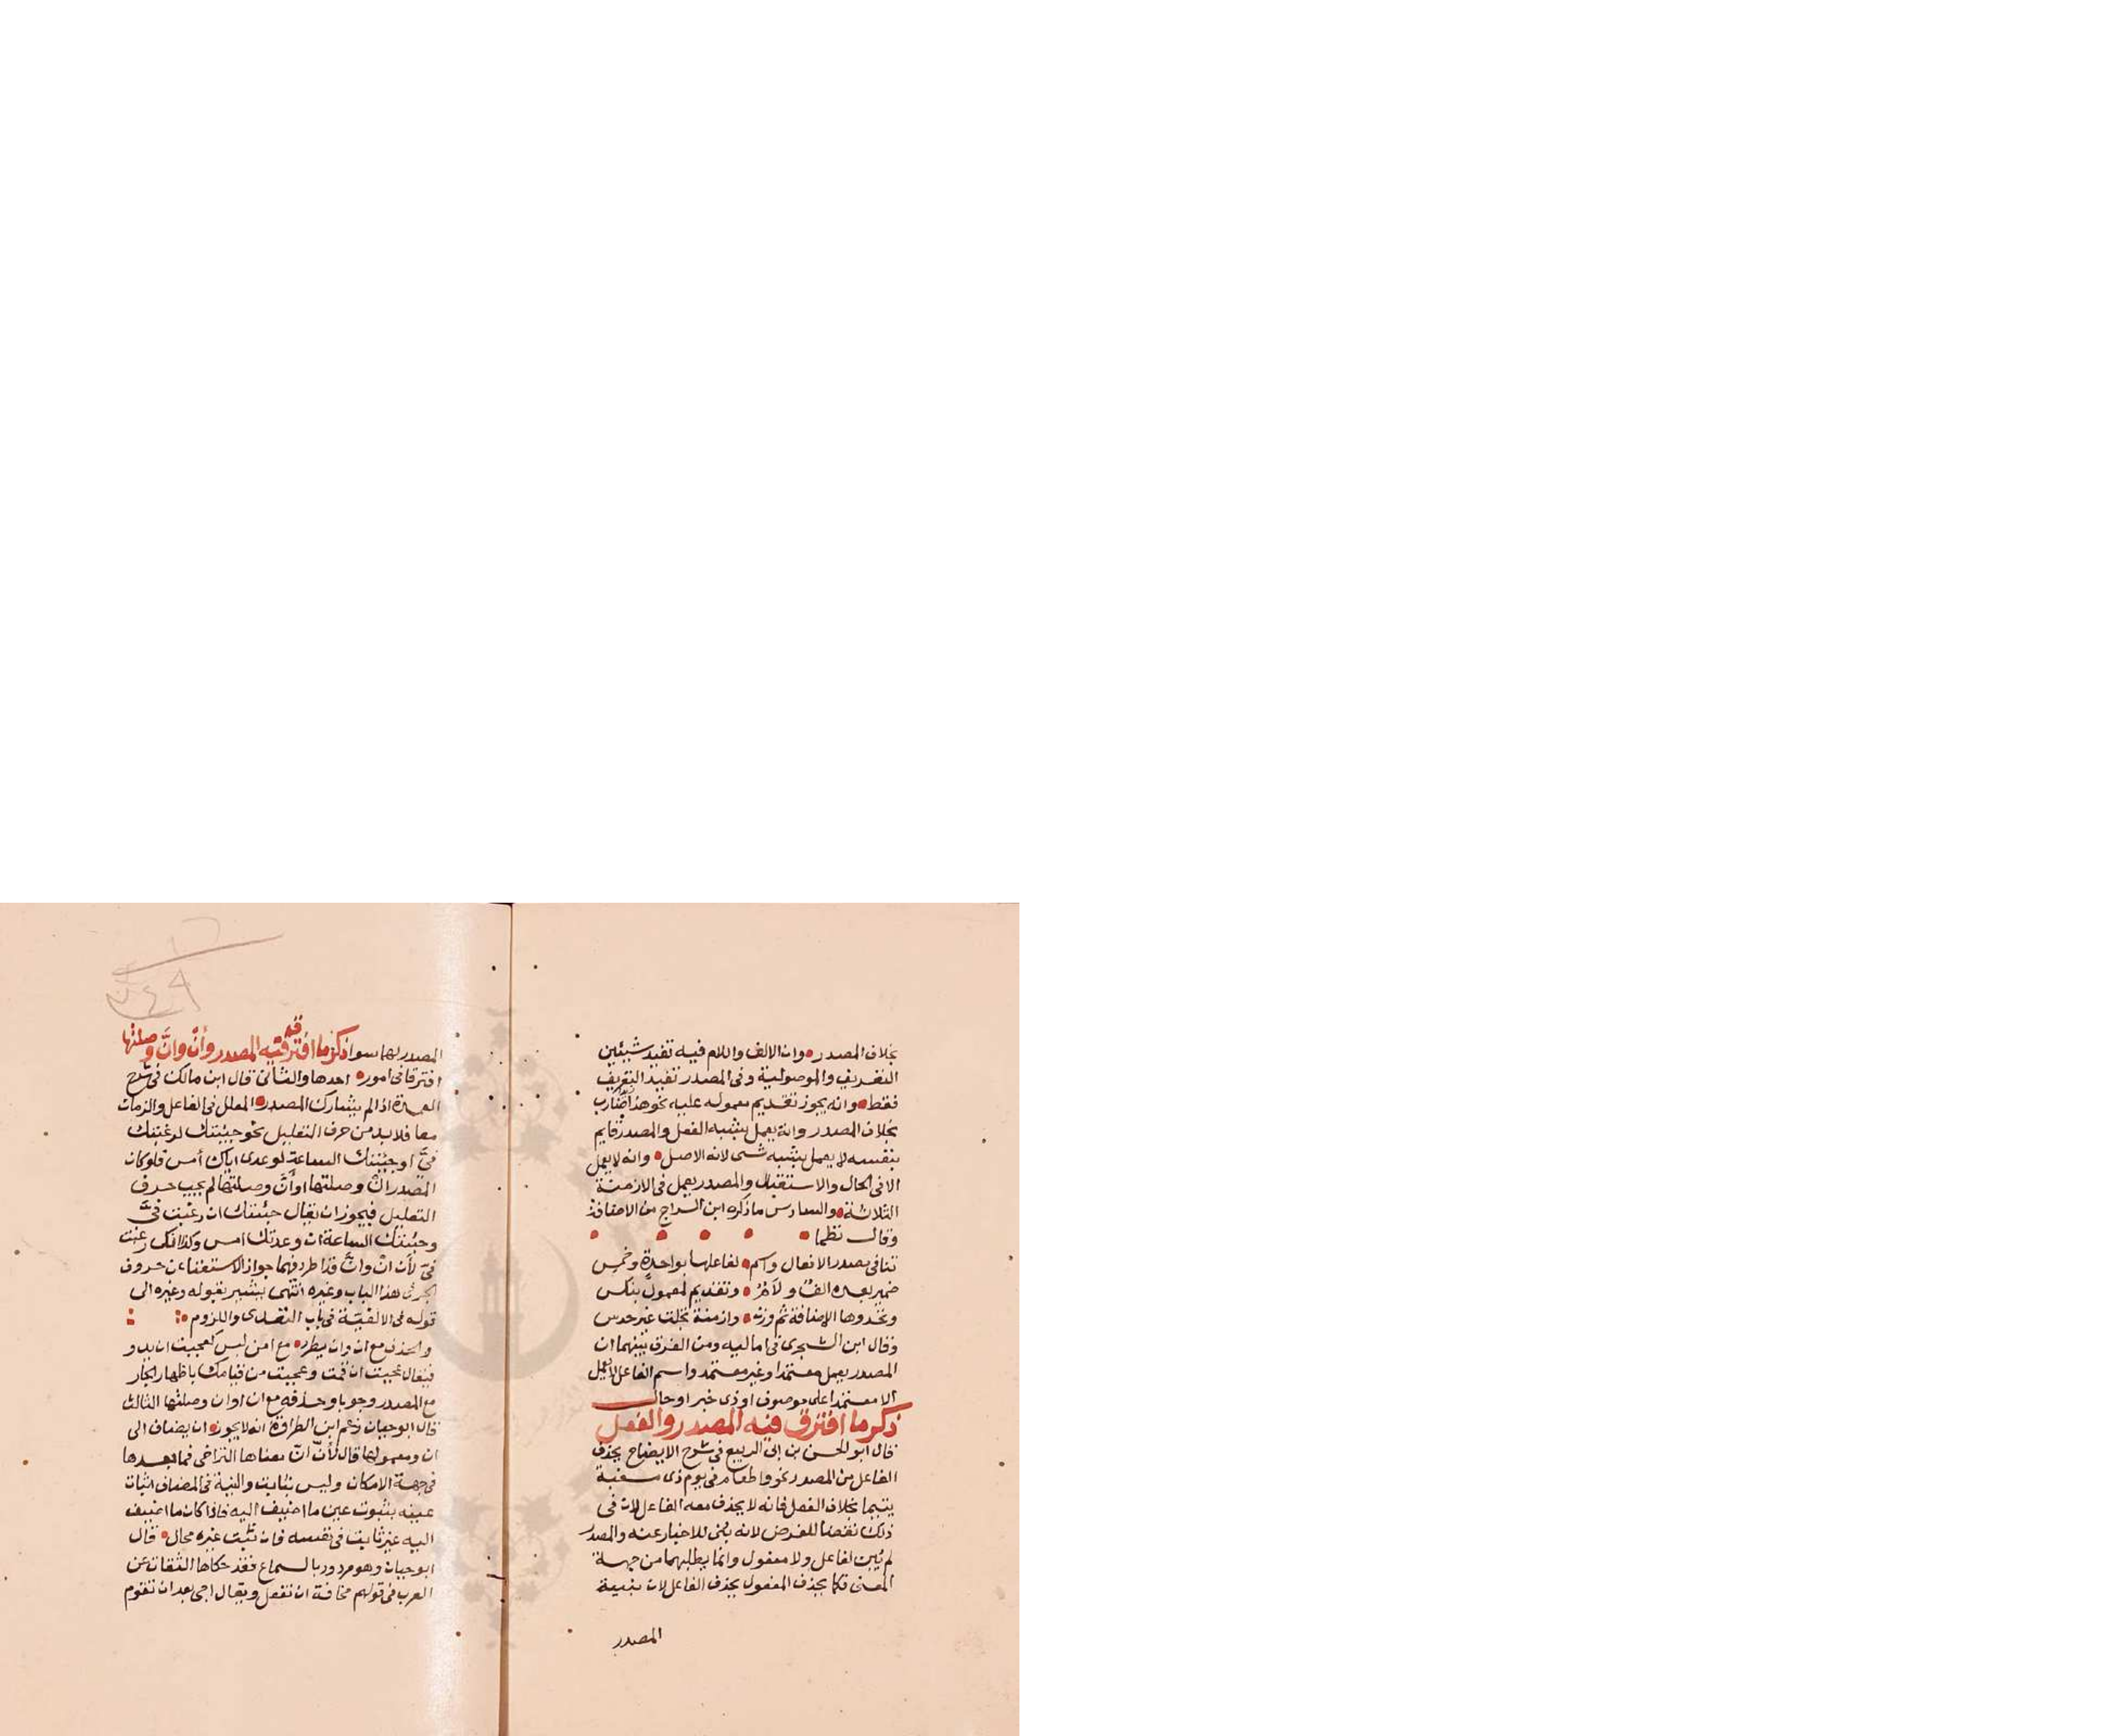 بخلاف المصدر وان الالف واللام فيه تفيد شيئين
التعريف والموصولية وفى المصدر تفيد التعريف
فقط وانه يجوز تقديم معموله عليه نحو هذا زيدا ضارب
بخلاف المصدر وانه يعمل بشبه الفعل والمصدر قايم
بنفسه لا يعمل بشبه شى لانه الاصل وانه لا يعمل
الا فى الحال والاستقبال والمصدر يعمل فى الازمنة
الثلاثة والسادس ماذكره ابن السراج من الاضافة
وقال نظما
تنافى مصدر الافعال واسم لفاعلها بواحدة وخمس
ضمير بعده الف ولام وتقديم لمعمول بنكس
وتحدوها الاضافة ثم وزن وازمنة تجلت غير حدس
وقال ابن الشجرى فى اماليه ومن الفرق بينهما ان
المصدر يعمل معتمدا وغير معتمد واسم الفاعل لا يعمل
الا معتمدا على موصوف او ذى خبر او حال
ذكر ما افترق فيه المصدر والفعل
قال ابو الحسن بن ابى الربيع فى شرح الايضاح يحذف
الفاعل من المصدر نحو واطعام فى يوم ذى مسغبة
يتيما بخلاف الفعل فانه لا يحذف معه الفاعل لان فى
ذلك نقضا للغرض لانه بنى للاخبار عنه والمصدر
لم يبن لفاعل ولا مفعول وانما يطلبهما من جهة
المعنى فكما يحذف المفعول يحذف الفاعل لان بنية
المصدر
المصدر لهما سوا ذكر ما افترق فيه المصدر وأنْ وأنَّ وصلتها
افترقا فى امور احدها والثانى قال ابن مالك فى شرح
العمدة اذا لم يشارك المصدر المعلل فى الفاعل والزمان
معا فلا بد من حرف التعليل نحو جيتك لرغبتك
فىّ او جئتك الساعة لوعدى اياك أمس فلو كان
المصدر انْ وصلتها او أنَّ وصلتها لم يجب حرف
التعليل فيجوز ان يقال جئتك ان رغبت فىّ
وجئتك الساعة ان وعدتك امس وكذا انك رغبت
فىّ لأن انْ وانَّ قد اطرد فيهما جواز الاستغناء عن حروف
الجر فى هذا الباب وغيره انتهى يشير بقوله وغيره الى
قوله فى الالفيّة فى باب التعدى واللزوم
والحذف مع ان وان يطرد مع امن لبس كعجبت ان يدو
فيقال عجبت ان قمت وعجبت من قيامك باظهار الجار
مع المصدر وجوبا وحذفه مع ان او ان وصلتها الثالث
قال ابو حيان زعم ابن الطراوة انه لا يجوز ان يضاف الى
ان ومعمولها قال لأن أنّ معناها التراخى فما بعدها
فى جهة الامكان وليس بثابت والنية فى المضاف اثبات
عينه بثبوت عين ما اضيف اليه فاذا كان ما اضيف
اليه غير ثابت فى نفسه فان تثبت غيره محال قال
ابو حيان وهو مردود بالسماع فقد حكاها الثقات عن
العرب فى قولهم مخافة ان تفعل ويقال اجى بعد ان تقوم